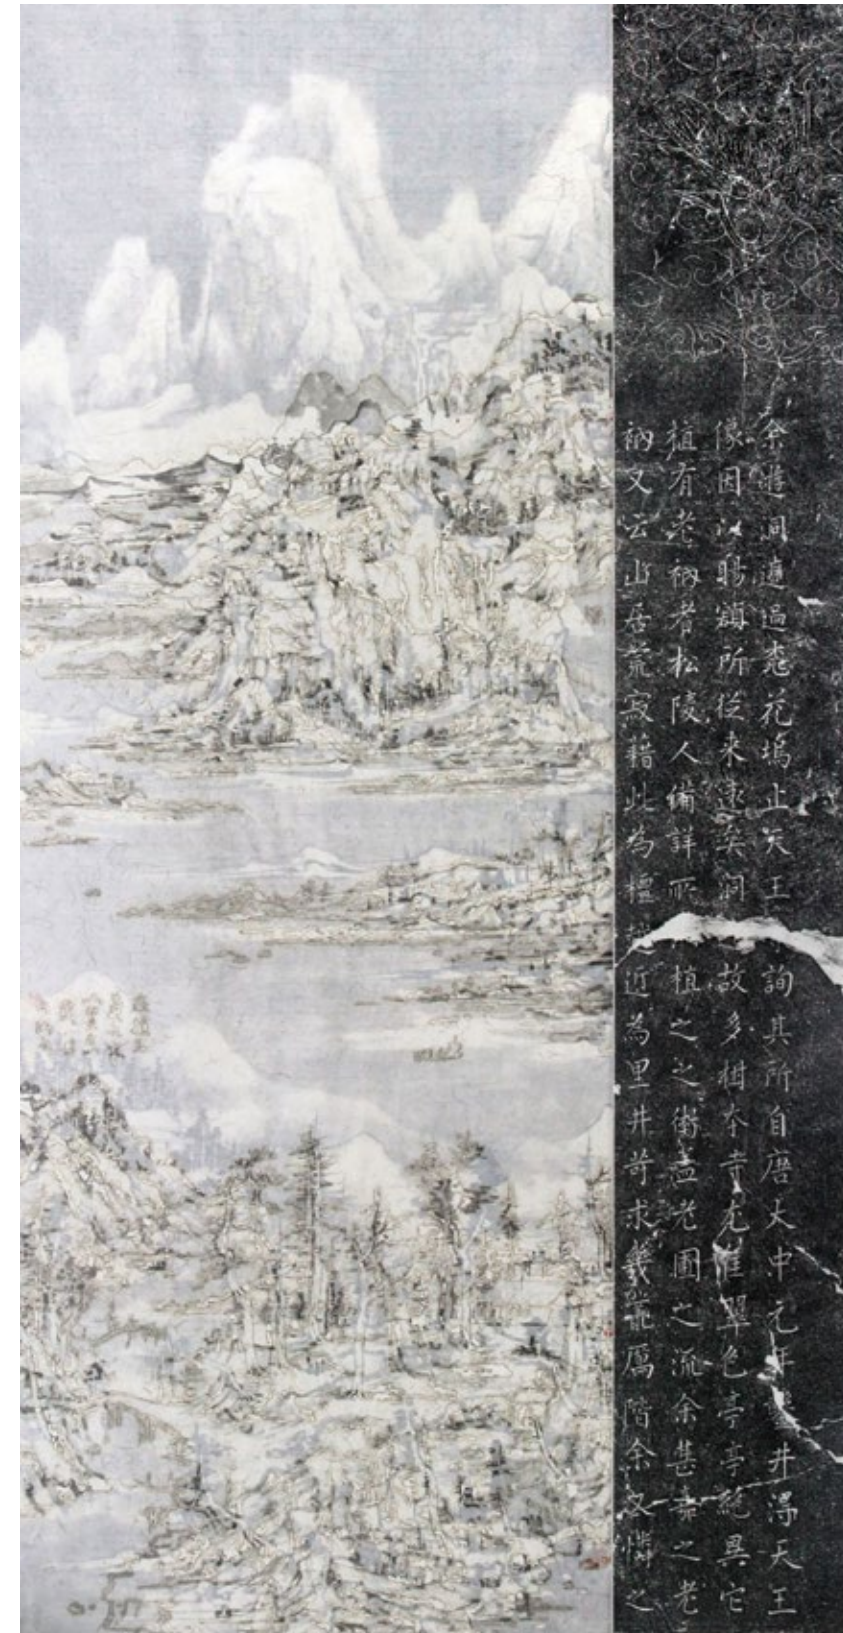 余遊洞過花塢止天王詢其所自唐大中元年井得天王
像因以賜額所從來遠矣洞故多柑本寺尤佳翠色亭亭純異它
植有老衲者松陵人備詳所植之之術蓋老圃之流余甚喜之老
衲又云山居荒寂藉此為檀越近為里井苛求幾荒厲階余又憐之